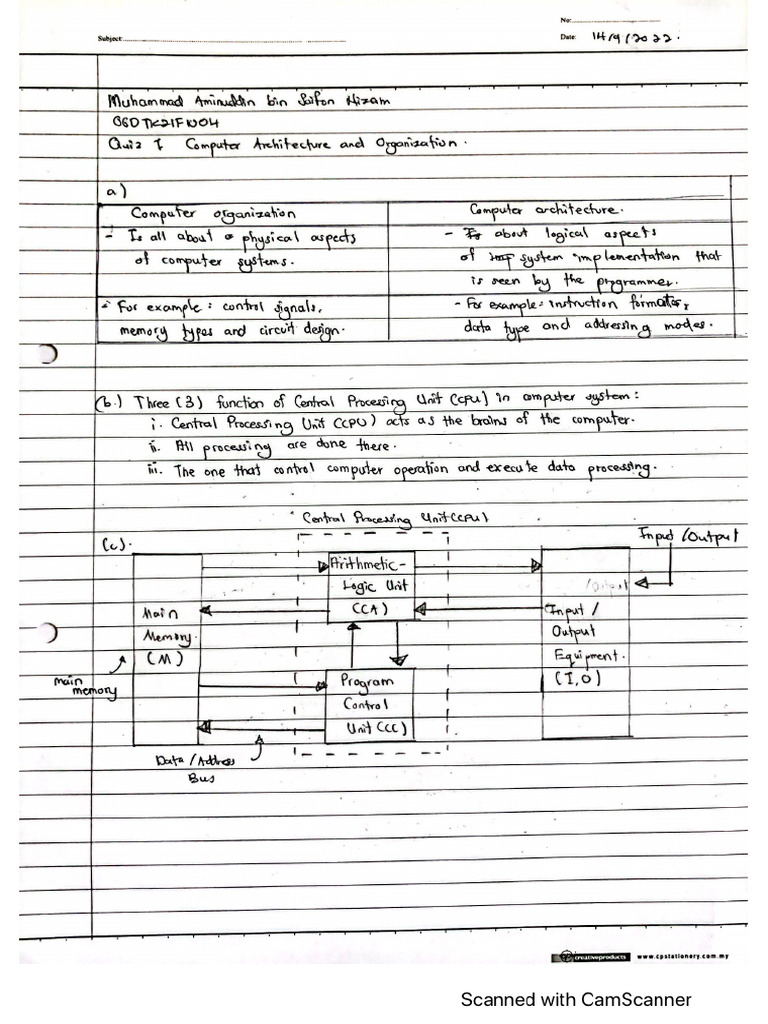 No:
Subject:
Date: 14/9/2022.
Muhammad Aminuddin bin Saifon Nizam
Quiz 1 Computer Architecture and Organization.
a)
Computer organization
- Is all about physical aspects
of computer systems.
- For example: control signals,
memory types and circuit design.
Computer architecture.
- Is about logical aspects
of system implementation that
is seen by the programmer.
- For example: instruction formats,
data type and addressing modes.
(b.) Three (3) function of Central Processing Unit (CPU) in computer system:
i. Central Processing Unit (CPU) acts as the brains of the computer.
ii. All processing are done there.
iii. The one that control computer operation and execute data processing.
Central Processing Unit (CPU)
(c).
Input /Output
Arithmetic-
Logic Unit
(CA)
Main
Memory.
(M)
main
memory
/Output
Input /
Output
Equipment.
(I,O)
Program
Control
Unit (CC)
Data / Address
Bus
creativeproducts www.cpstationery.com.my
Scanned with CamScanner